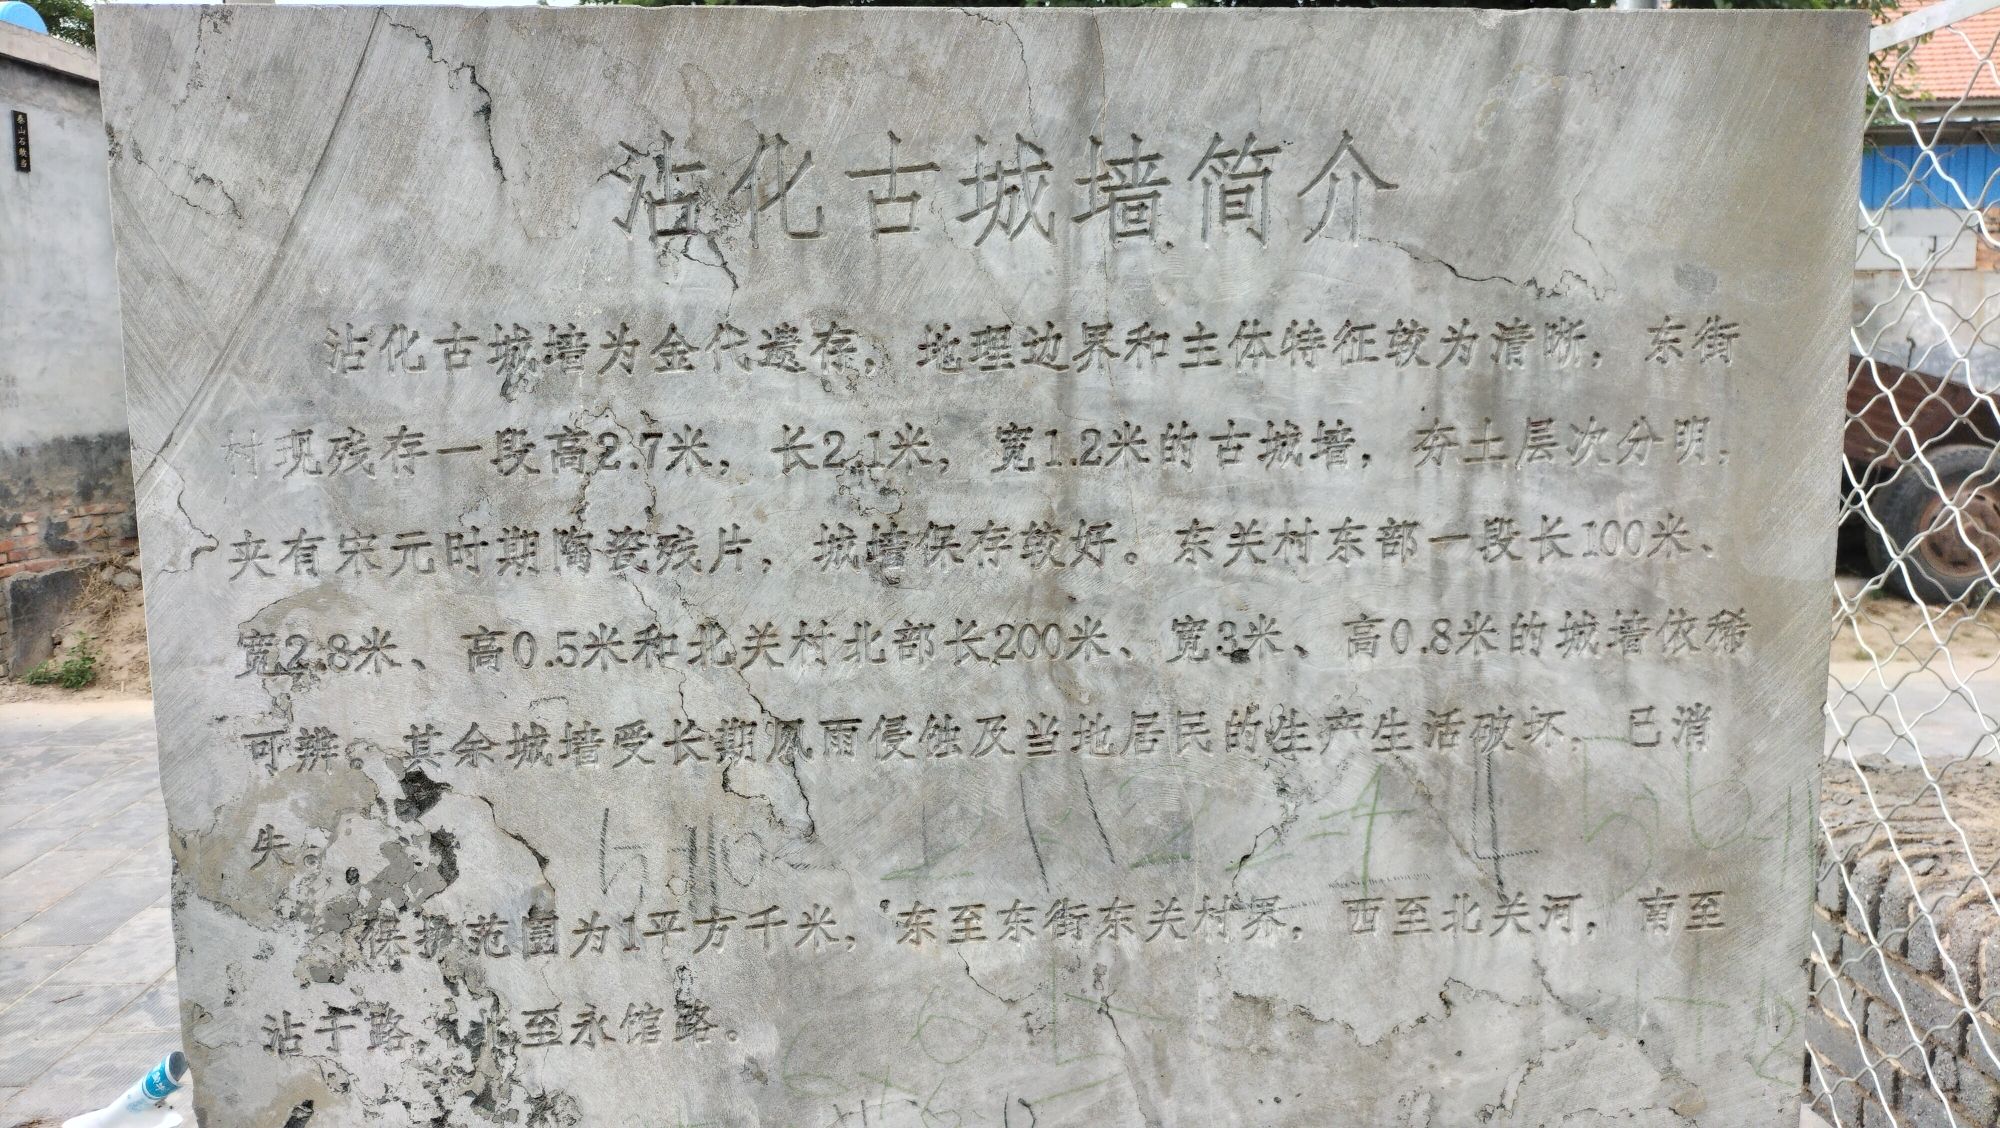 沾化古城墙简介
沾化古城墙为金代遗存，地理边界和主体特征较为清晰，东街
村现残存一段高2.7米，长2.1米，宽1.2米的古城墙，夯土层次分明，
夹有宋元时期陶瓷残片，城墙保存较好。东关村东部一段长100米、
宽2.8米、高0.5米和北关村北部长200米、宽3米、高0.8米的城墙依稀
可辨。其余城墙受长期风雨侵蚀及当地居民的生产生活破坏，已消
失。
保护范围为1平方千米，东至东街东关村界，西至北关河，南至
沾于路，北至永馆路。
泰山石敢当